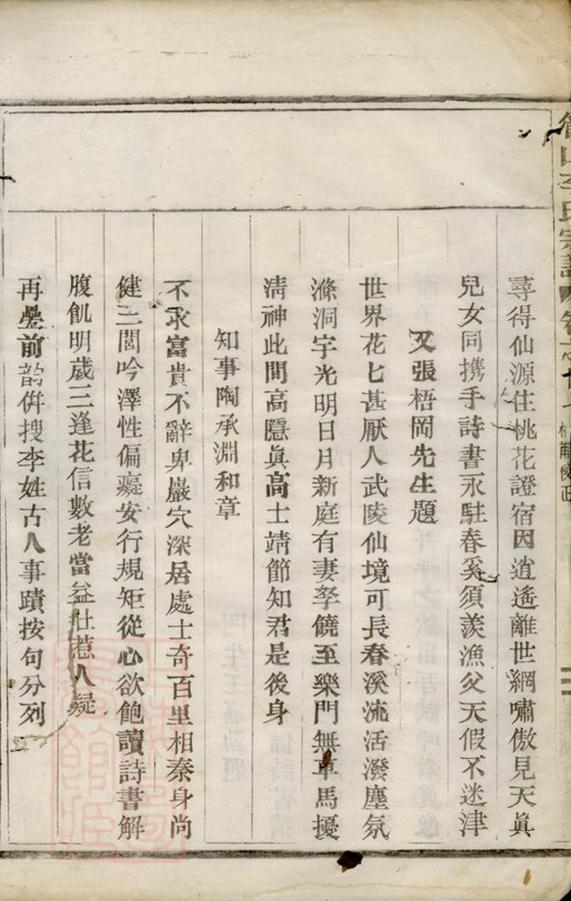 尋得仙源住桃花證宿因逍遙離世網嘯傲見天眞
兒女同携手詩書永駐春奚須羨漁父天假不迷津
又張梧岡先生題
世界花七甚厭人武陵仙境可長春溪流活潑塵氛
滌洞宇光明日月新庭有妻孥饒至樂門無車馬擾
淸神此間高隱眞高士靖節知君是後身
知事陶承淵和章
不求富貴不辭卑巖穴深居處士奇百里相秦身尚
健三閭吟澤性偏癡安行規矩從心欲飽讀詩書解
腹飢明歲三逢花信數老當益壯惹人疑
再疊前韵併搜李姓古人事蹟按句分列
山李氏宗譜 卷之